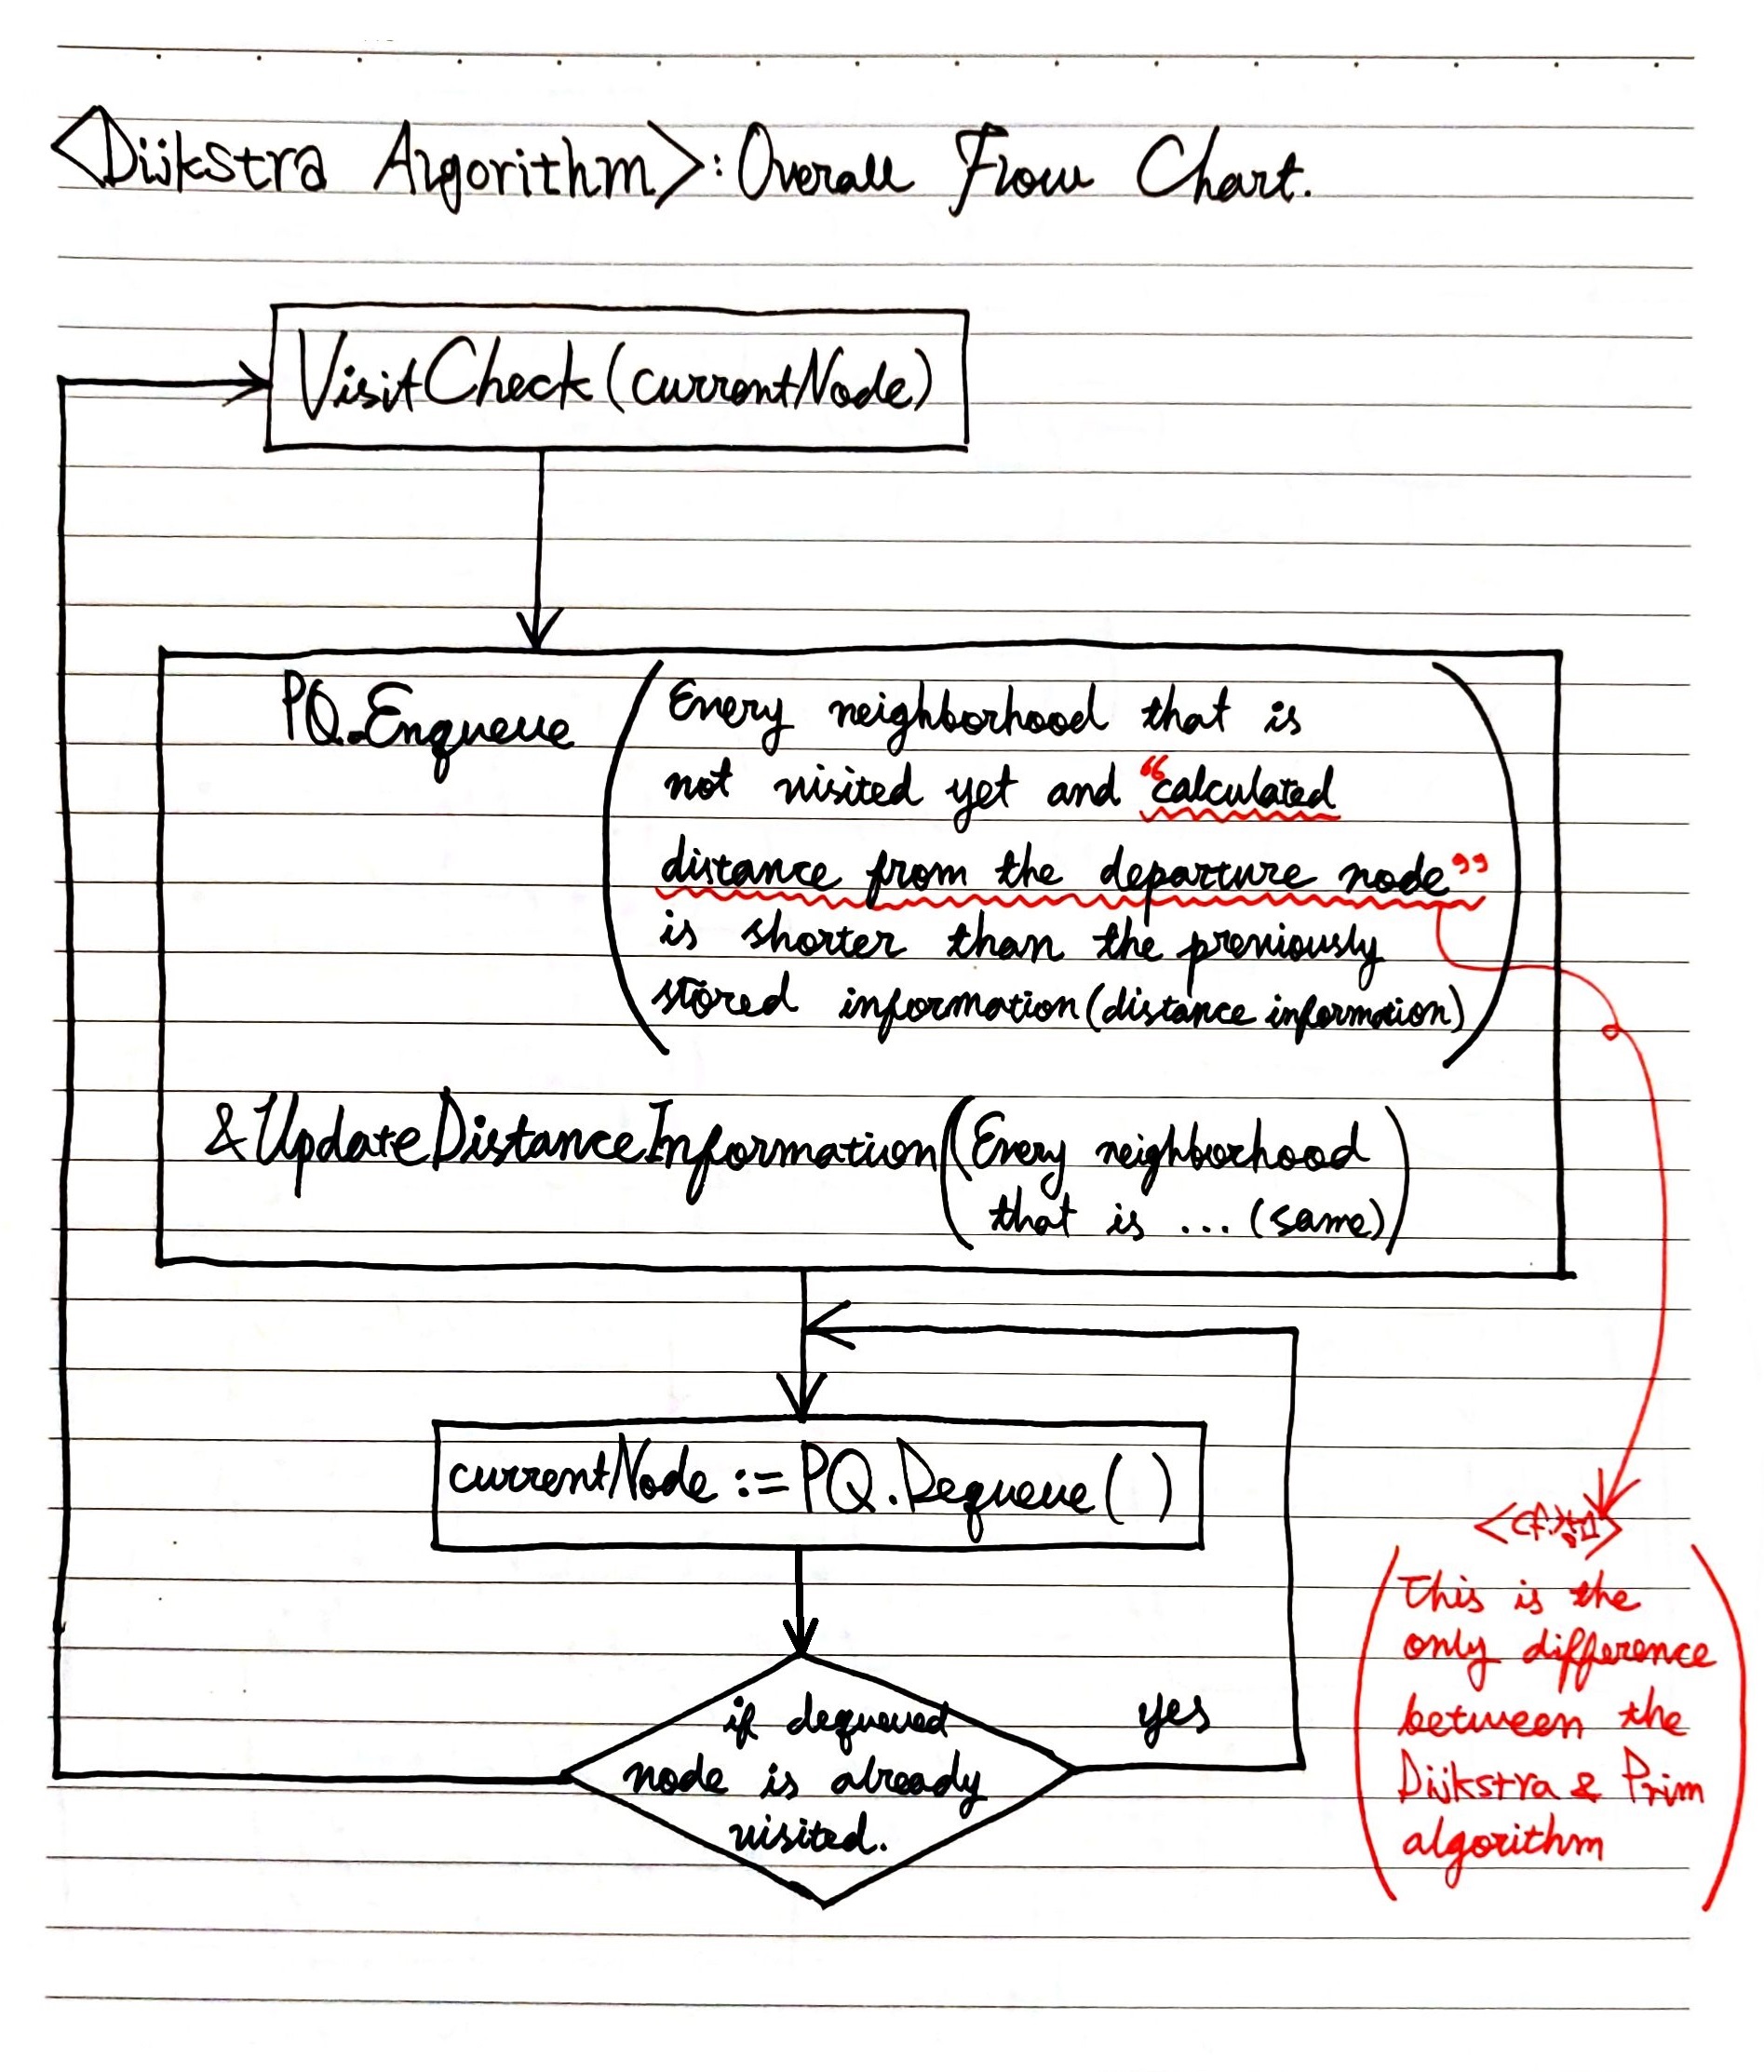 <Dijkstra Algorithm>: Overall Flow Chart.
VisitCheck(currentNode)
PQ.Enqueue
Every neighborhood that is
not visited yet and “calculated
distance from the departure node”
is shorter than the previously
stored information(distance information)
&UpdateDistanceInformation(Every neighborhood
that is ... (same))
currentNode := PQ.Dequeue( )
if dequeued
node is already
visited.
yes
(This is the
only difference
between the
Dijkstra & Prim
algorithm)